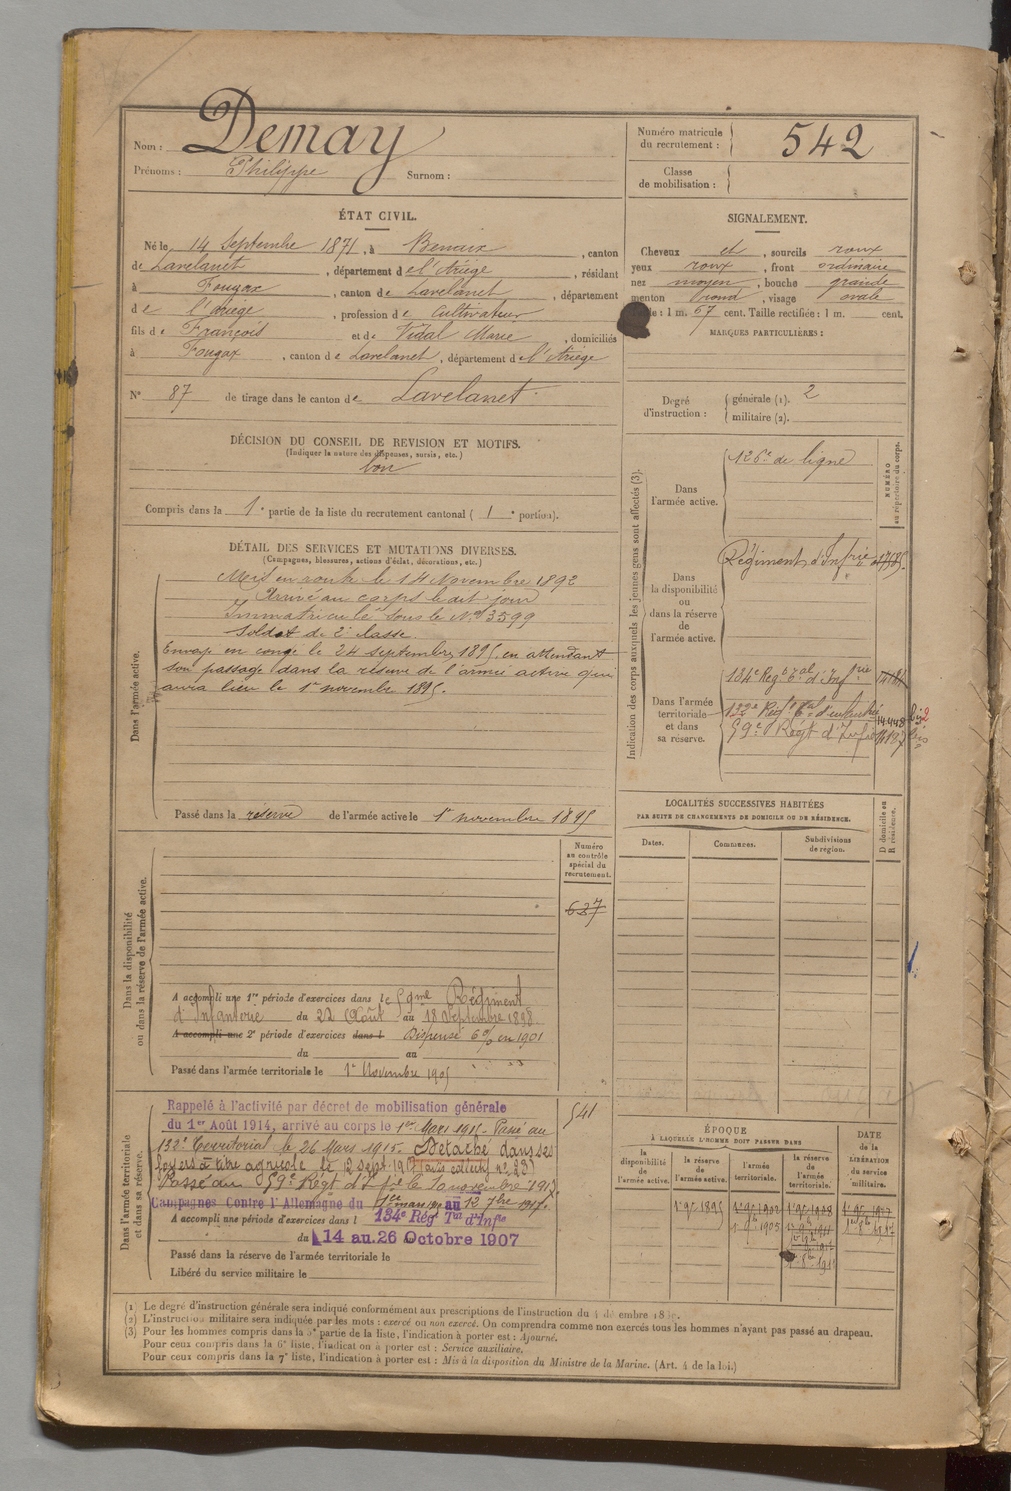 Nom : Demay
Prénoms : Philippe Surnom :
Numéro matricule du recrutement : 542
Classe de mobilisation :
ÉTAT CIVIL.
Né le 14 Septembre 1871, à Benaix, canton
de Lavelanet, département de l'Ariège, résidant
à Fougax, canton de Lavelanet, département
de l'Ariège, profession de Cultivateur
fils de François et de Vidal Marie, domiciliés
à Fougax, canton de Lavelanet, département de l'Ariège
N° 87 de tirage dans le canton de Lavelanet.
SIGNALEMENT.
Cheveux et, sourcils roux
yeux roux, front ordinaire
nez moyen, bouche grande
menton rond, visage ovale
Taille : 1 m. 67 cent. Taille rectifiée : 1 m. cent.
MARQUES PARTICULIÈRES :
Degré d'instruction : générale (1). 2
militaire (2).
DÉCISION DU CONSEIL DE REVISION ET MOTIFS.
(Indiquer la nature des dispenses, sursis, etc.)
bon
Compris dans la 1e partie de la liste du recrutement cantonal ( 1e portion).
DÉTAIL DES SERVICES ET MUTATIONS DIVERSES.
(Campagnes, blessures, actions d'éclat, décorations, etc.)
Dans l'armée active.
Mis en route le 14 Novembre 1892
Arrivé au corps le dit jour
Immatriculé sous le No 3599
Soldat de 2e classe.
Envoyé en congé le 24 septembre 1895, en attendant
son passage dans la réserve de l'armée active qui
aura lieu le 1er novembre 1895.
Passé dans la réserve de l'armée active le 1er novembre 1895
Indication des corps auxquels les jeunes gens sont affectés (3).
NUMÉRO au répertoire du corps.
Dans l'armée active.
126e de ligne
Dans la disponibilité ou dans la réserve de l'armée active.
Régiment d'Infrie
Dans l'armée territoriale et dans sa réserve.
134e Régt Tal d'Infrie
132e Régt Tal d'infanterie 14448
59e Régt d'Infie
LOCALITÉS SUCCESSIVES HABITÉES
PAR SUITE DE CHANGEMENTS DE DOMICILE OU DE RÉSIDENCE.
Dates. Communes. Subdivisions de région. D domicile ou R résidence.
Dans la disponibilité ou dans la réserve de l'armée active.
Numéro au contrôle spécial du recrutement.
637
A accompli une 1re période d'exercices dans le 59me Régiment
d'Infanterie du 22 Août au 18 Septembre 1898
A accompli une 2e période d'exercices dans l Dispensé 6 % en 1901
du au
Passé dans l'armée territoriale le 1er Novembre 1905
Dans l'armée territoriale et dans sa réserve.
541
Rappelé à l'activité par décret de mobilisation générale
du 1er Août 1914, arrivé au corps le 1er Mars 1915. Passé au
132e Territorial le 26 Mars 1915. Détaché dans ses
foyers à titre agricole le 12 sept. 1917
Passé au 59e Régt d'Infie le 10 novembre 1917
Campagnes Contre l'Allemagne du 1er mars 1915 au 12 7bre 1917.
A accompli une période d'exercices dans l 134e Régt Tal d'Infie
du 14 au 26 Octobre 1907
Passé dans la réserve de l'armée territoriale le
Libéré du service militaire le
ÉPOQUE
À LAQUELLE L'HOMME DOIT PASSER DANS
la disponibilité de l'armée active. la réserve de l'armée active. l'armée territoriale. la réserve de l'armée territoriale.
DATE de la LIBÉRATION du service militaire.
(1) Le degré d'instruction générale sera indiqué conformément aux prescriptions de l'instruction du 4 décembre 1889.
(2) L'instruction militaire sera indiquée par les mots : exercé ou non exercé. On comprendra comme non exercés tous les hommes n'ayant pas passé au drapeau.
(3) Pour les hommes compris dans la 5e partie de la liste, l'indication à porter est : Ajourné.
Pour ceux compris dans la 6e liste, l'indication à porter est : Service auxiliaire.
Pour ceux compris dans la 7e liste, l'indication à porter est : Mis à la disposition du Ministre de la Marine. (Art. 4 de la loi.)